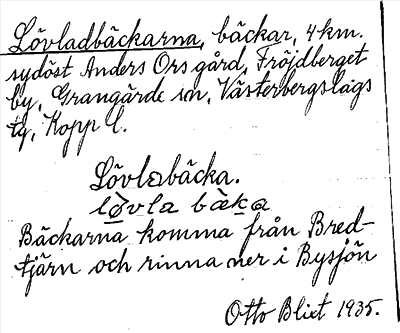 Lövladbäckarna, bäckar, 4 km.
sydöst Anders Ors gård, Fröjdberget
by, Grangärde sn, Västerbergslags
tg, Kopp l.
Lövlabäcka.
løvla bæka
Bäckarna komma från Bred-
tjärn och rinna ner i Bysjön
Otto Blixt 1935.